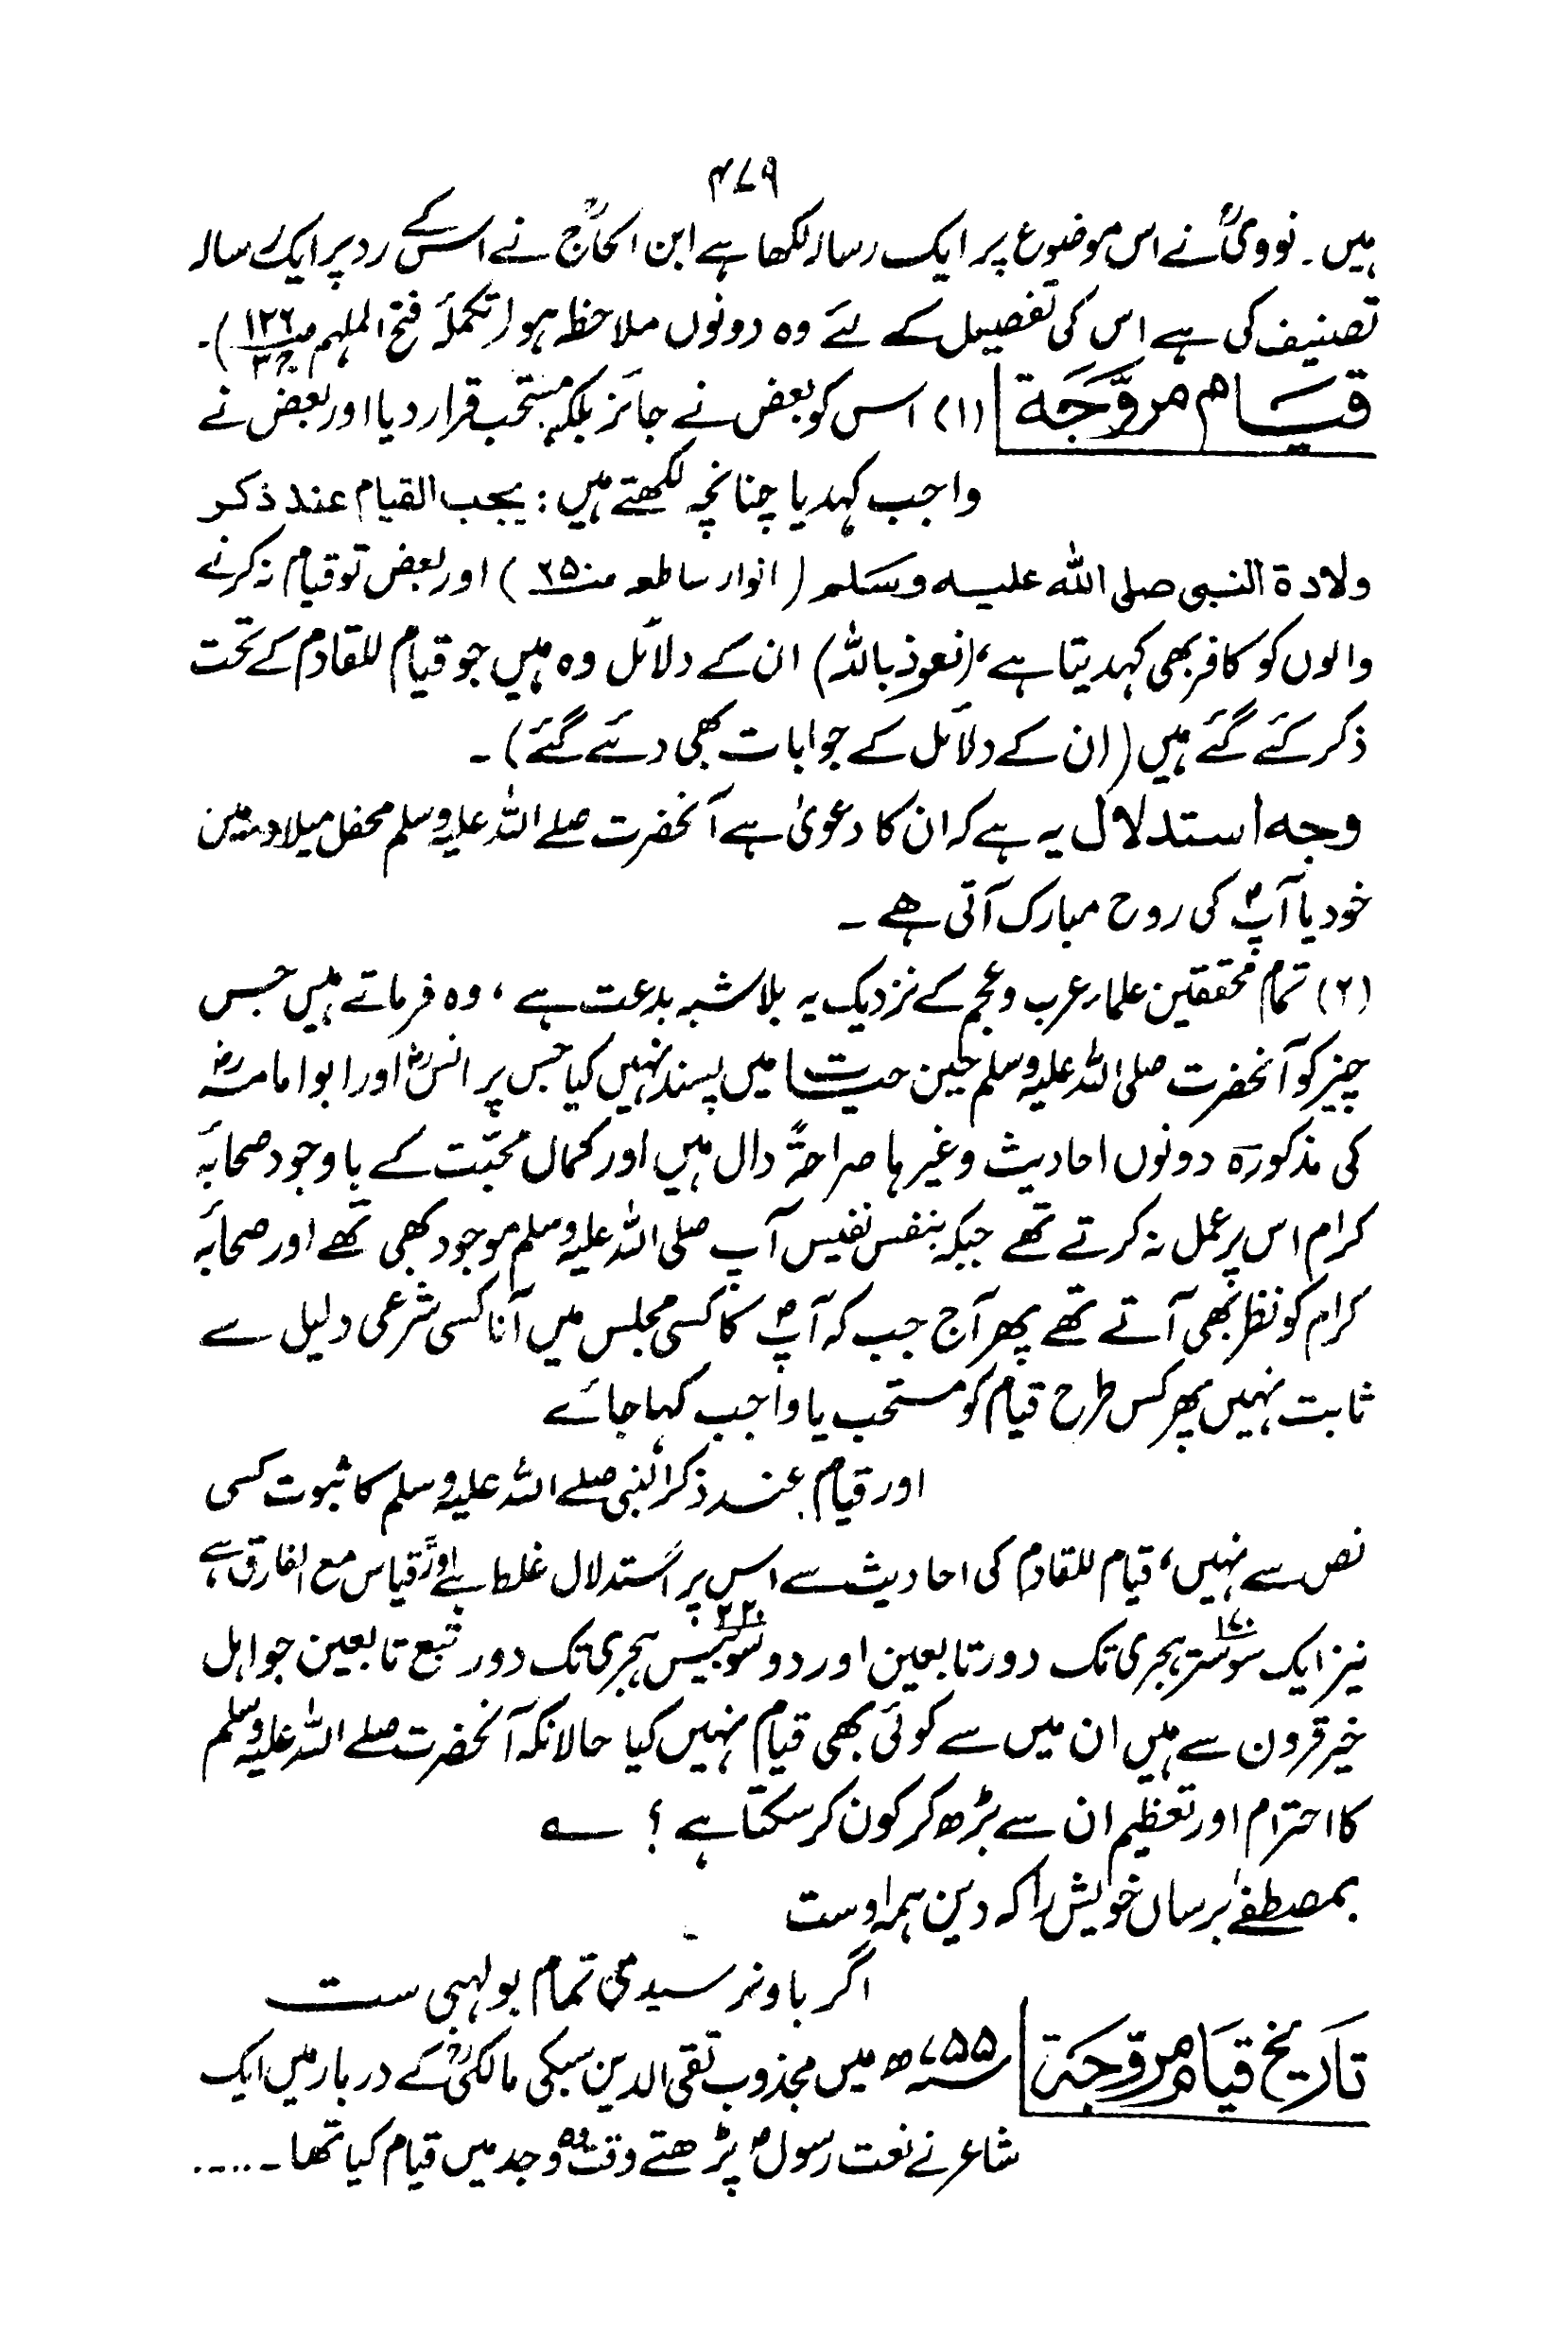 ۴۷۹
ہیں۔ نوویؒ نے اس موضوع پر ایک رسالہ لکھا ہے ابن الحاجؒ نے اس کے رد پر ایک رسالہ
تصنیف کی ہے اس کی تفصیل کے لئے وہ دونوں ملاحظہ ہو (تکملۂ فتح الملہم ص۱۲۶ ج۳)۔
قیام مروَّجہ (۱) اس کو بعض نے جائز بلکہ مستحب قرار دیا اور بعض نے
واجب کہدیا چنانچہ لکھتے ہیں : یجب القیام عند ذکر
ولادۃ النبی صلی اللہ علیہ وسلم (انوار ساطعہ ص۲۵۰) اور بعض تو قیام نہ کرنے
والوں کو کافر بھی کہدیتا ہے، (نعوذ باللہ) ان کے دلائل وہ ہیں جو قیام للقادم کے تحت
ذکر کئے گئے ہیں (ان کے دلائل کے جوابات بھی دئے گئے)۔
وجہ استدلال یہ ہے کہ ان کا دعویٰ ہے آنحضرت صلے اللہ علیہ وسلم محفل میلاد میں
خود یا آپؐ کی روح مبارک آتی ہے ۔
(۲) تمام محققین علماء عرب و عجم کے نزدیک یہ بلا شبہ بدعت ہے ، وہ فرماتے ہیں جس
چیز کو آنحضرت صلی اللہ علیہ وسلم حین حیات میں پسند نہیں کیا جس پر انسؓ اور ابو امامہؓ
کی مذکورہ دونوں احادیث وغیرہا صراحۃً دال ہیں اور کمال محبّت کے باوجود صحابۂ
کرام اس پر عمل نہ کرتے تھے جبکہ بنفس نفیس آپ صلی اللہ علیہ وسلم موجود بھی تھے اور صحابۂ
کرام کو نظر بھی آتے تھے پھر آج جب کہ آپؐ کا کسی مجلس میں آنا کسی شرعی دلیل سے
ثابت نہیں پھر کس طرح قیام کو مستحب یا واجب کہا جائے
اور قیام عند ذکر النبی صلے اللہ علیہ وسلم کا ثبوت کسی
نص سے نہیں، قیام للقادم کی احادیث سے اس پر استدلال غلط ہے اور قیاس مع الفارق ہے
نیز ایک سو ستر ۱۷۰ ہجری تک دور تابعین اور دو سو بیس ۲۲۰ ہجری تک دور تبع تابعین جو اہل
خیر قرون سے ہیں ان میں سے کوئی بھی قیام نہیں کیا حالانکہ آنحضرت صلے اللہ علیہ وسلم
کا احترام اور تعظیم ان سے بڑھ کر کون کر سکتا ہے ؟ ؎
بمصطفےٰ برساں خویش را کہ دین ہمہ اوست
اگر باو نرسیدی تمام بولہبی ست
تاریخ قیام مروّجہ ۷۵۵ھ میں مجذوب تقی الدین سبکی مالکیؒ کے دربار میں ایک
شاعر نے نعت رسولؐ پڑھتے وقت وہ وجد میں قیام کیا تھا ۔....